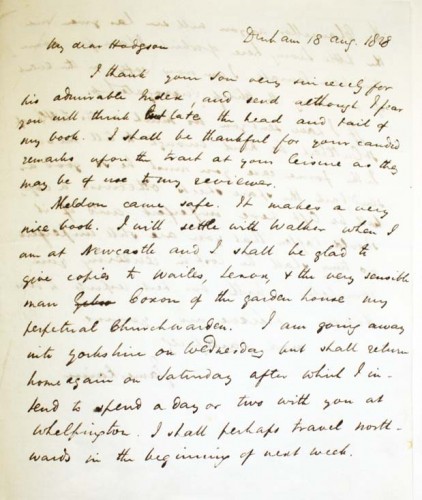 Durham 18 Aug. 1828
My dear Hodgson
I thank your son very sincerely for
his admirable Index, and send although I fear
you will think late the head and tail of
my book. I shall be thankful for your candid
remarks upon the tract at your leisure as they
may be of use to my reviewer.
Meldon came safe. It makes a very
nice book. I will settle with Walker when I
am at Newcastle and I shall be glad to
give copies to Wailes, Lenox, & the very sensible
man Coxon of the garden house my
perpetual Churchwarden. I am going away
into Yorkshire on Wednesday but shall return
home again on Saturday after which I in-
tend to spend a day or two with you at
Whelpington. I shall perhaps travel north-
wards in the beginning of next week.